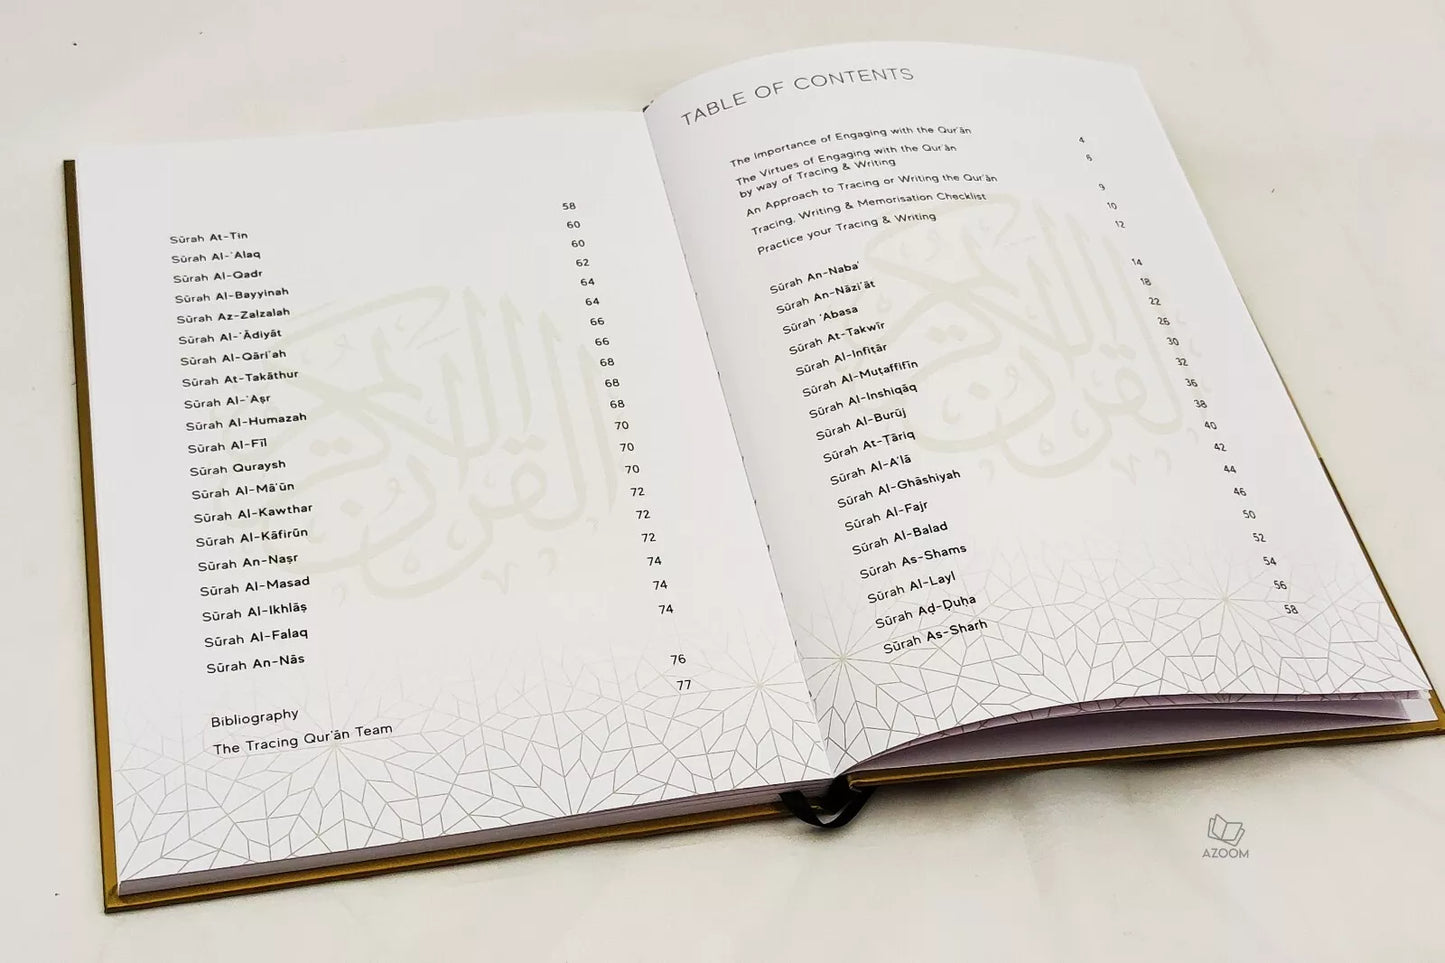 TABLE OF CONTENTS
The Importance of Engaging with the Qur'ān 4
The Virtues of Engaging with the Qur'ān
by way of Tracing & Writing 6
An Approach to Tracing or Writing the Qur'ān 9
Tracing, Writing & Memorisation Checklist 10
Practice your Tracing & Writing 12
Sūrah An-Naba' 14
Sūrah An-Nāzi'āt 18
Sūrah 'Abasa 22
Sūrah At-Takwīr 26
Sūrah Al-Infiṭār 30
Sūrah Al-Muṭaffifīn 32
Sūrah Al-Inshiqāq 36
Sūrah Al-Burūj 38
Sūrah Aṭ-Ṭāriq 40
Sūrah Al-A'lā 42
Sūrah Al-Ghāshiyah 44
Sūrah Al-Fajr 46
Sūrah Al-Balad 50
Sūrah As-Shams 52
Sūrah Al-Layl 54
Sūrah Aḍ-Ḍuḥa 56
Sūrah As-Sharh 58
القرآن الكريم
Sūrah At-Tin 58
Sūrah Al-'Alaq 60
Sūrah Al-Qadr 60
Sūrah Al-Bayyinah 62
Sūrah Az-Zalzalah 64
Sūrah Al-'Ādiyāt 64
Sūrah Al-Qāri'ah 66
Sūrah At-Takāthur 66
Sūrah Al-'Aṣr 68
Sūrah Al-Humazah 68
Sūrah Al-Fīl 68
Sūrah Quraysh 70
Sūrah Al-Mā'ūn 70
Sūrah Al-Kawthar 70
Sūrah Al-Kāfirūn 72
Sūrah An-Naṣr 72
Sūrah Al-Masad 72
Sūrah Al-Ikhlāṣ 74
Sūrah Al-Falaq 74
Sūrah An-Nās 74
Bibliography 76
The Tracing Qur'ān Team 77
القرآن الكريم
AZOOM